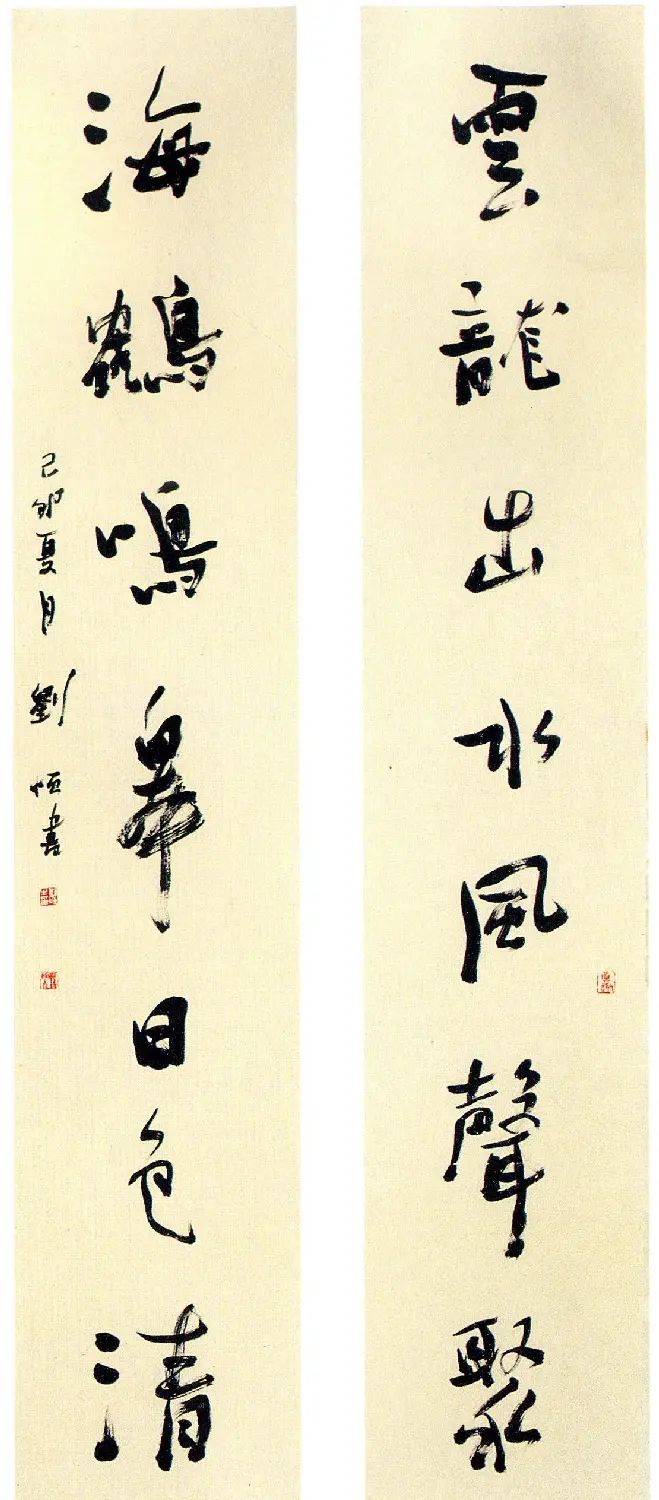 雲龍出水風聲聚
海鶴鳴皋日色清
己卯夏月劉恒書